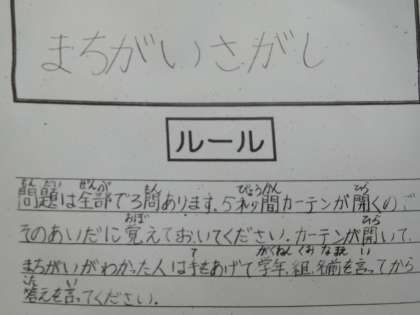 まちがいさがし
ルール
問題は全部で3問あります。5秒間カーテンが開くので
そのあいだに覚えておいてください。カーテンが開いて、
まちがいがわかった人は手をあげて学年、組、名前を言ってから
答えを言ってください。